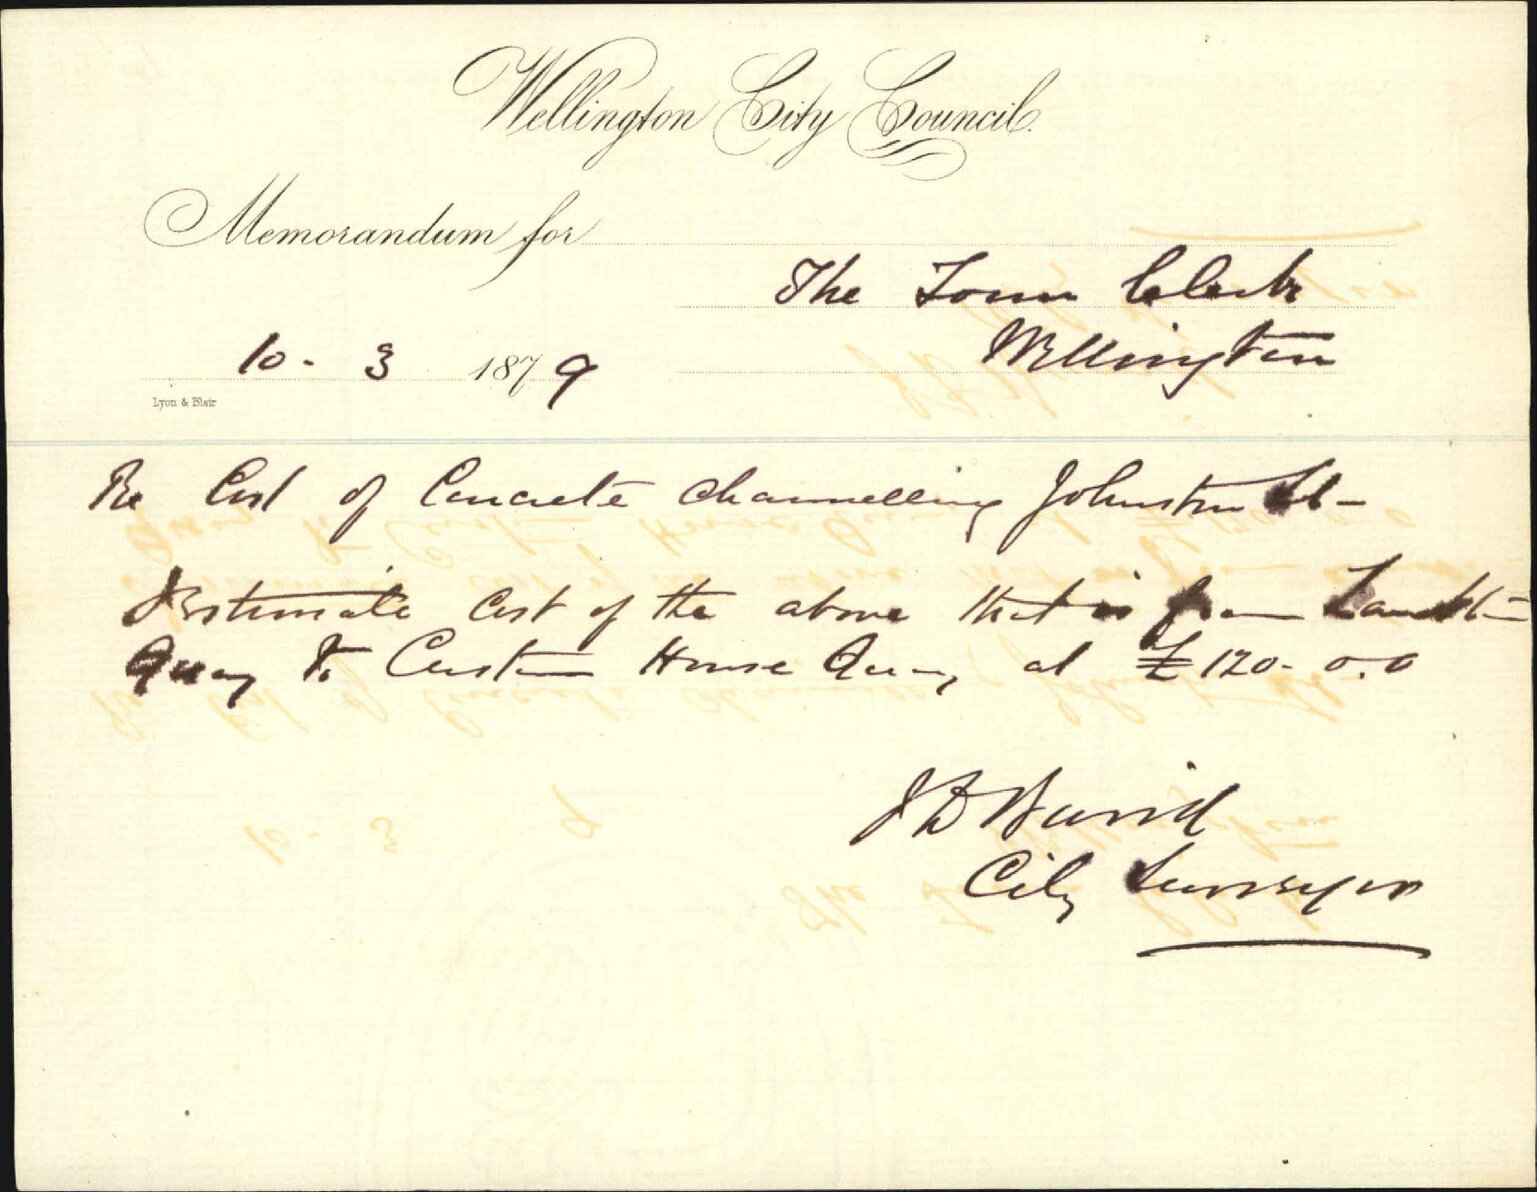 Wellington City Council.
Memorandum for
The Town Clerk
Wellington
10 - 3 1879
Lyon & Blair
Re Cost of Concrete Channelling Johnston St -
I estimate cost of the above that is from Lambton
Quay to Custom House Quay at £120-0.0
J D Baird
City Surveyor